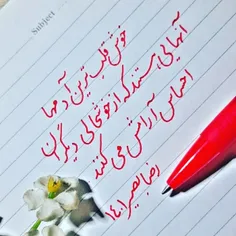 Subject
خوش قلب ترین آدمها
آنهایی هستند که از خوشحالی دیگران
احساس آرامش می کنند
رضا بصیر ۱۴۰۱